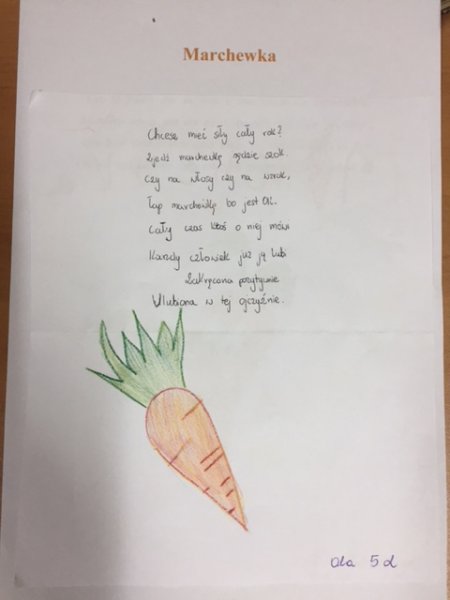 Marchewka
Chcesz mieć siły cały rok?
Zjedz marchewkę będzie szok
Czy na włosy czy na wzrok,
Łap marchewkę bo jest Ok.
Cały czas ktoś o niej mówi
Każdy człowiek już ją lubi
Zakręcona pozytywnie
Ulubiona w tej ojczyźnie.
Ola 5d